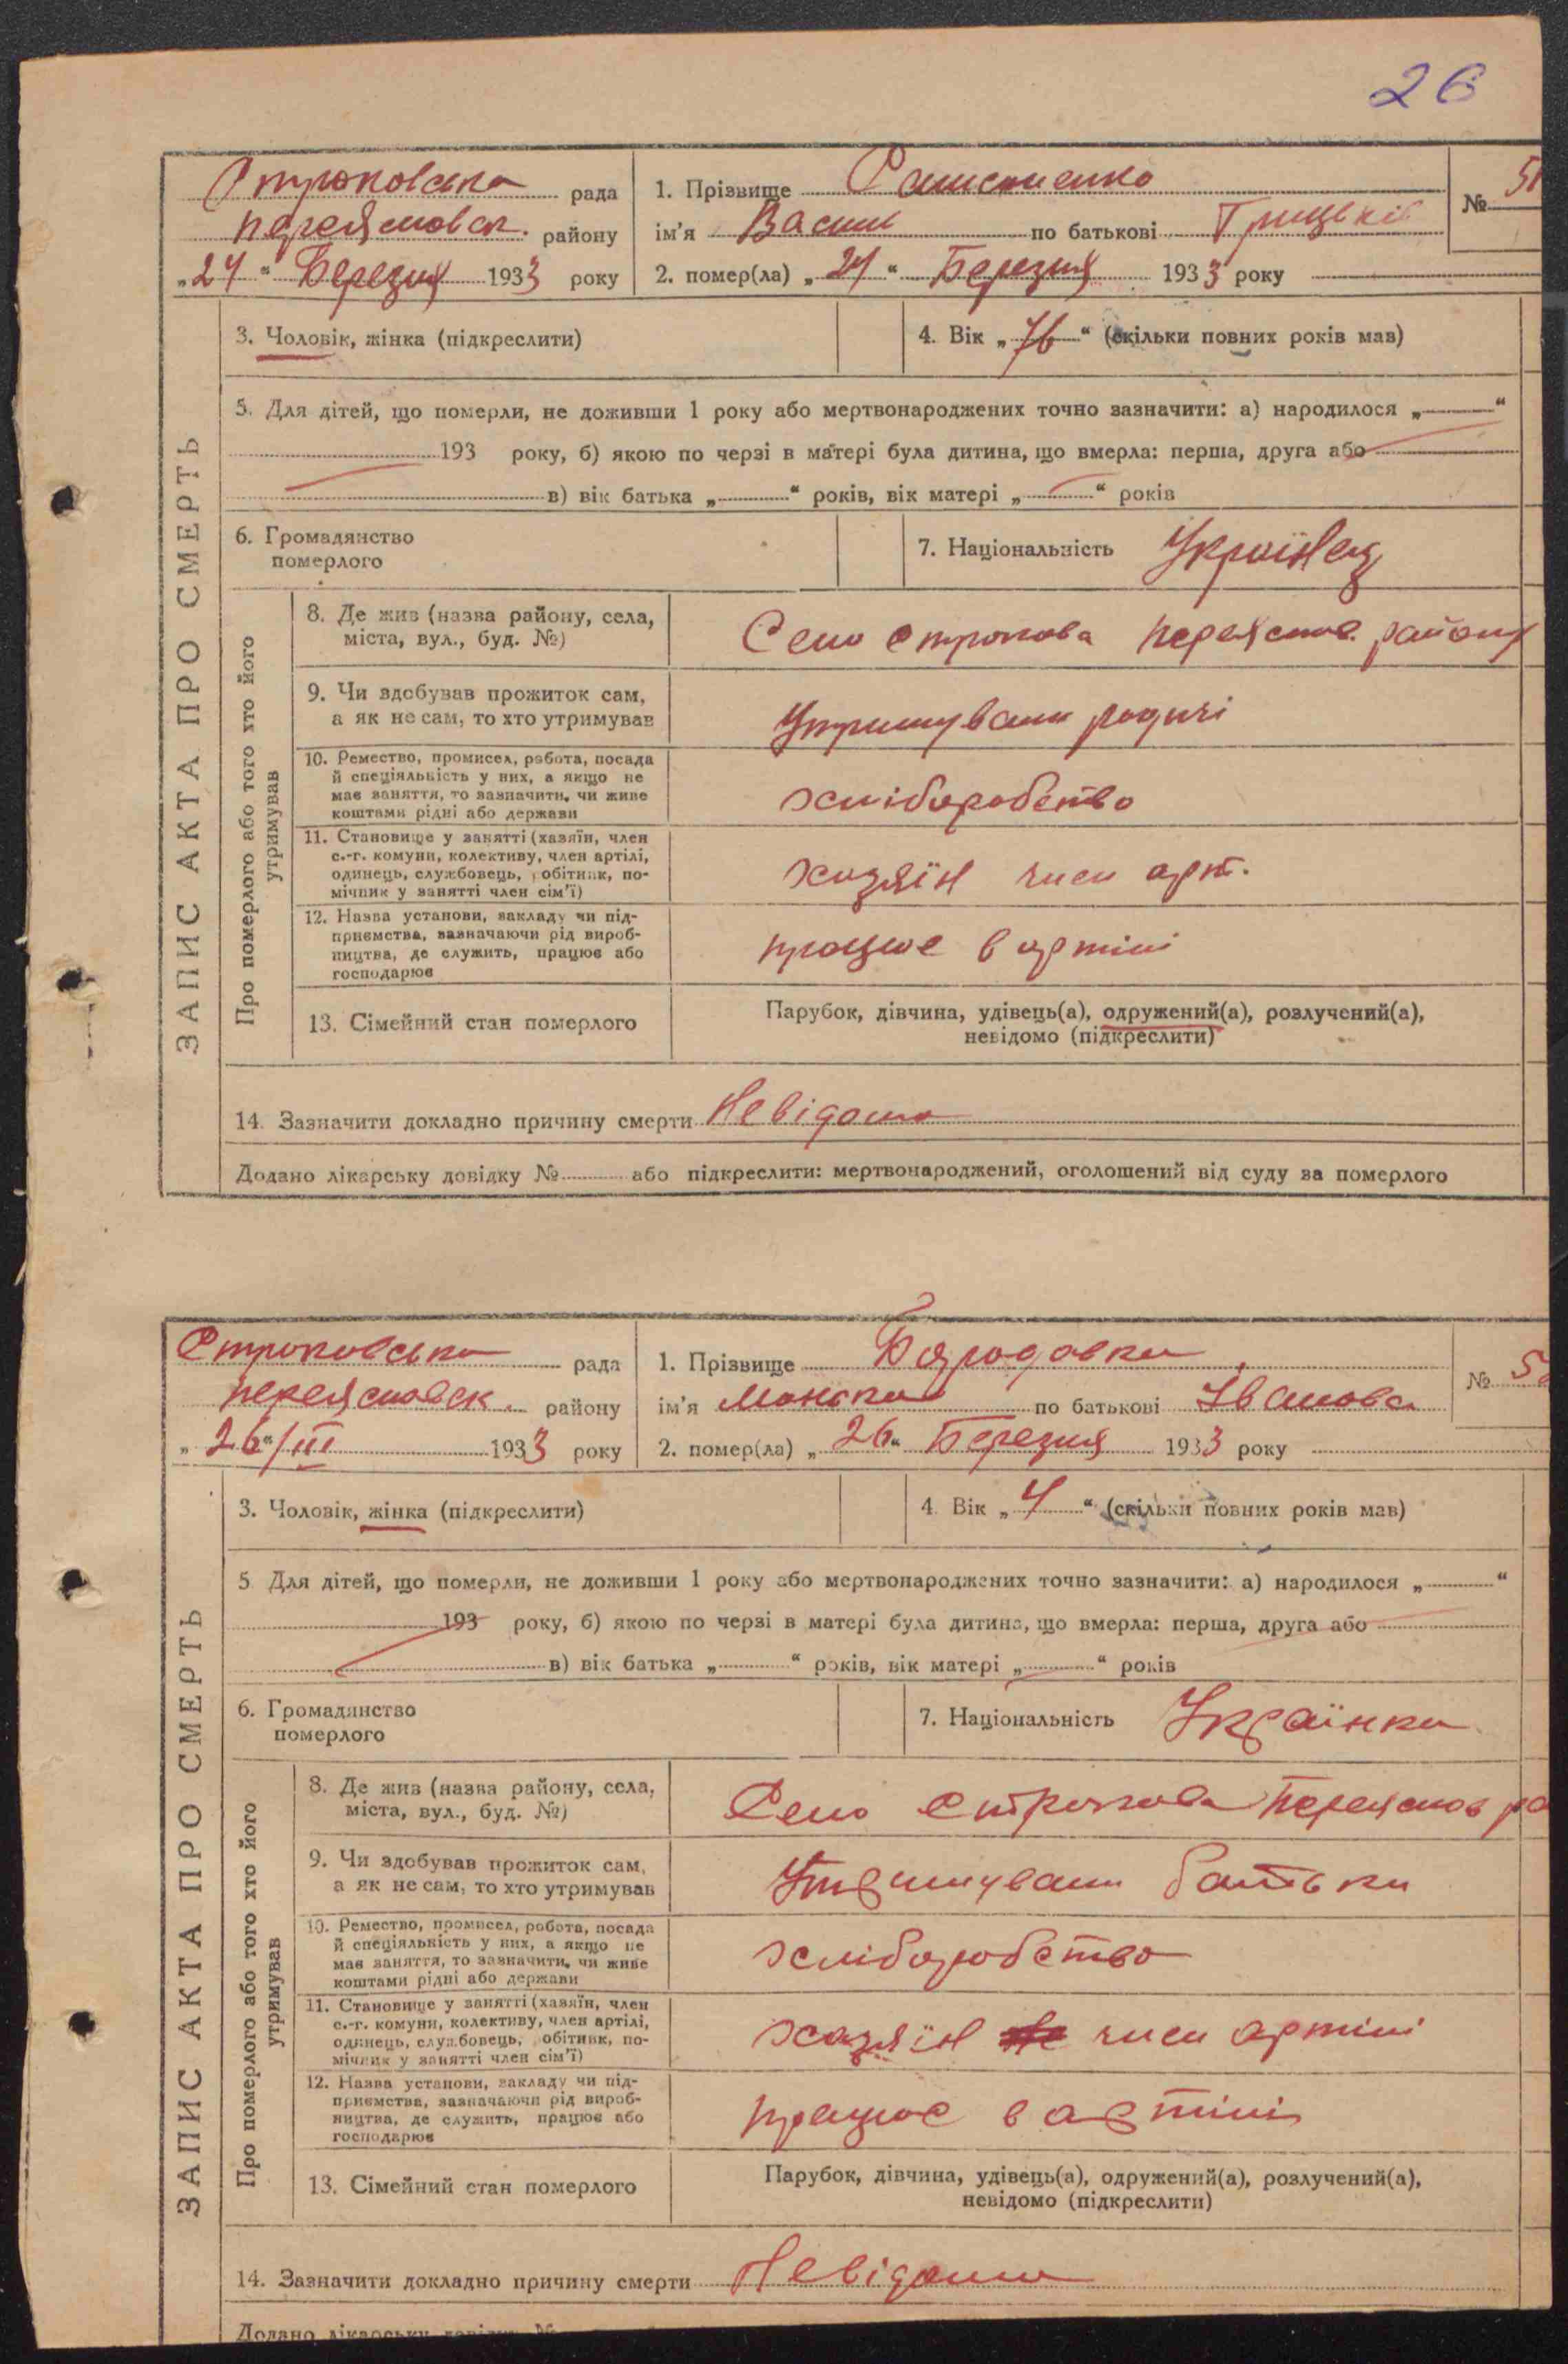 26
Строковська рада
переясловск. району
„24“ Березня 1933 року
1. Прізвище
ім'я Васил по батькові Грицьків
№ 51
2. помер(ла) „24“ Березня 1933 року
ЗАПИС АКТА ПРО СМЕРТЬ
3. Чоловік, жінка (підкреслити)
4. Вік „76“ (скільки повних років мав)
5. Для дітей, що померли, не доживши 1 року або мертвонароджених точно зазначити: а) народилося „ “
193 року, б) якою по черзі в матері була дитина, що вмерла: перша, друга або
в) вік батька „ “ років, вік матері „ “ років
6. Громадянство
померлого
7. Національність Українец
Про померлого або того хто його
утримував
8. Де жив (назва району, села,
міста, вул., буд. №)
Село Строкова переяслов. району
9. Чи здобував прожиток сам,
а як не сам, то хто утримував
Утримували родичі
10. Ремество, промисел, робота, посада
й спеціяльність у них, а якщо не
має заняття, то зазначити, чи живе
коштами рідні або держави
хліборобство
11. Становище у занятті (хазяїн, член
с.-г. комуни, колективу, член артілі,
одинець, службовець, робітник, по-
мічник у занятті член сім'ї)
хазяїн член арт.
12. Назва установи, закладу чи під-
приємства, зазначаючи рід вироб-
ництва, де служить, працює або
господарює
працює в артілі
13. Сімейний стан померлого
Парубок, дівчина, удівець(а), одружений(а), розлучений(а),
невідомо (підкреслити)
14. Зазначити докладно причину смерти Невідома
Додано лікарську довідку № або підкреслити: мертвонароджений, оголошений від суду за померлого
Строковська рада
переясловск. району
„26“/III 1933 року
1. Прізвище Бородавка
ім'я по батькові Іванова
№ 5
2. помер(ла) „26“ Березня 1933 року
ЗАПИС АКТА ПРО СМЕРТЬ
3. Чоловік, жінка (підкреслити)
4. Вік „4“ (скільки повних років мав)
5. Для дітей, що померли, не доживши 1 року або мертвонароджених точно зазначити: а) народилося „ “
193 року, б) якою по черзі в матері була дитина, що вмерла: перша, друга або
в) вік батька „ “ років, вік матері „ “ років
6. Громадянство
померлого
7. Національність Українка
Про померлого або того хто його
утримував
8. Де жив (назва району, села,
міста, вул., буд. №)
Село Строкова Переяслов ра
9. Чи здобував прожиток сам,
а як не сам, то хто утримував
Утримували батьки
10. Ремество, промисел, робота, посада
й спеціяльність у них, а якщо не
має заняття, то зазначити, чи живе
коштами рідні або держави
хліборобство
11. Становище у занятті (хазяїн, член
с.-г. комуни, колективу, член артілі,
одинець, службовець, робітник, по-
мічник у занятті член сім'ї)
хазяїн член артілі
12. Назва установи, закладу чи під-
приємства, зазначаючи рід вироб-
ництва, де служить, працює або
господарює
працює в артілі
13. Сімейний стан померлого
Парубок, дівчина, удівець(а), одружений(а), розлучений(а),
невідомо (підкреслити)
14. Зазначити докладно причину смерти Невідома
Додано лікарську довідку №